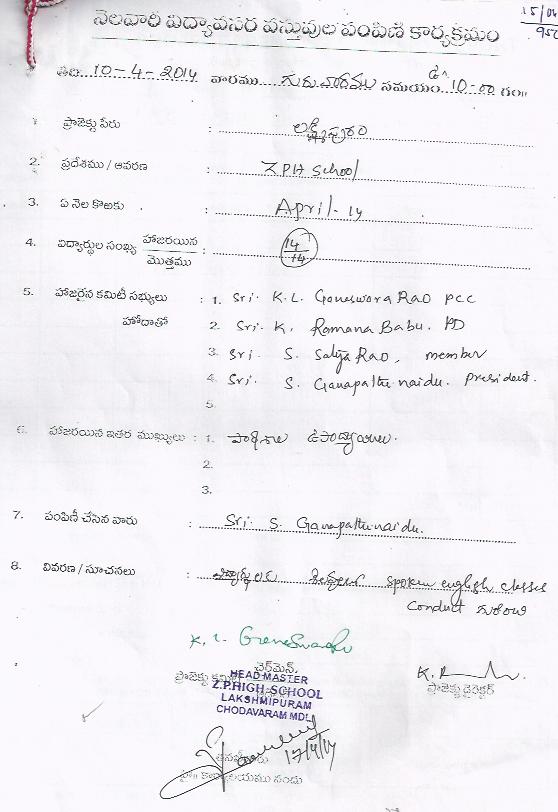 15/04
950
నెలవారి విద్యావసర వస్తువుల పంపిణి కార్యక్రమం
తేది. 10-4-2014 వారము గురువారము సమయం ఉ. 10-00 గం॥
1. ప్రాజెక్టు పేరు : లక్ష్మీపురం
2. ప్రదేశము / ఆవరణ : Z.P.H School
3. ఏ నెల కొఱకు : April-14
4. విద్యార్థుల సంఖ్య హాజరయిన / మొత్తము : 14/14
5. హాజరైన కమిటీ సభ్యులు : 1. Sri. K.L. Ganeswara Rao PCC
హోదాతో 2. Sri. K. Ramana Babu. PD
3. Sri. S. Satya Rao, member
4. Sri. S. Ganapathi naidu. President.
5.
6. హాజరయిన ఇతర ముఖ్యులు : 1. పాఠశాల ఉపాధ్యాయులు.
2.
3.
7. పంపిణీ చేసిన వారు : Sri. S. Ganapathi naidu.
8. వివరణ / సూచనలు : విద్యార్థులకు spoken english classes
conduct
K. L. Ganeswara
ఛైర్‌మెన్,
ప్రాజెక్టు కమిటీ
HEAD MASTER
Z.P.HIGH SCHOOL
LAKSHMIPURAM
CHODAVARAM MDL
ప్రాజెక్టు డైరెక్టర్
17/4/14
కార్యాలయము నందు